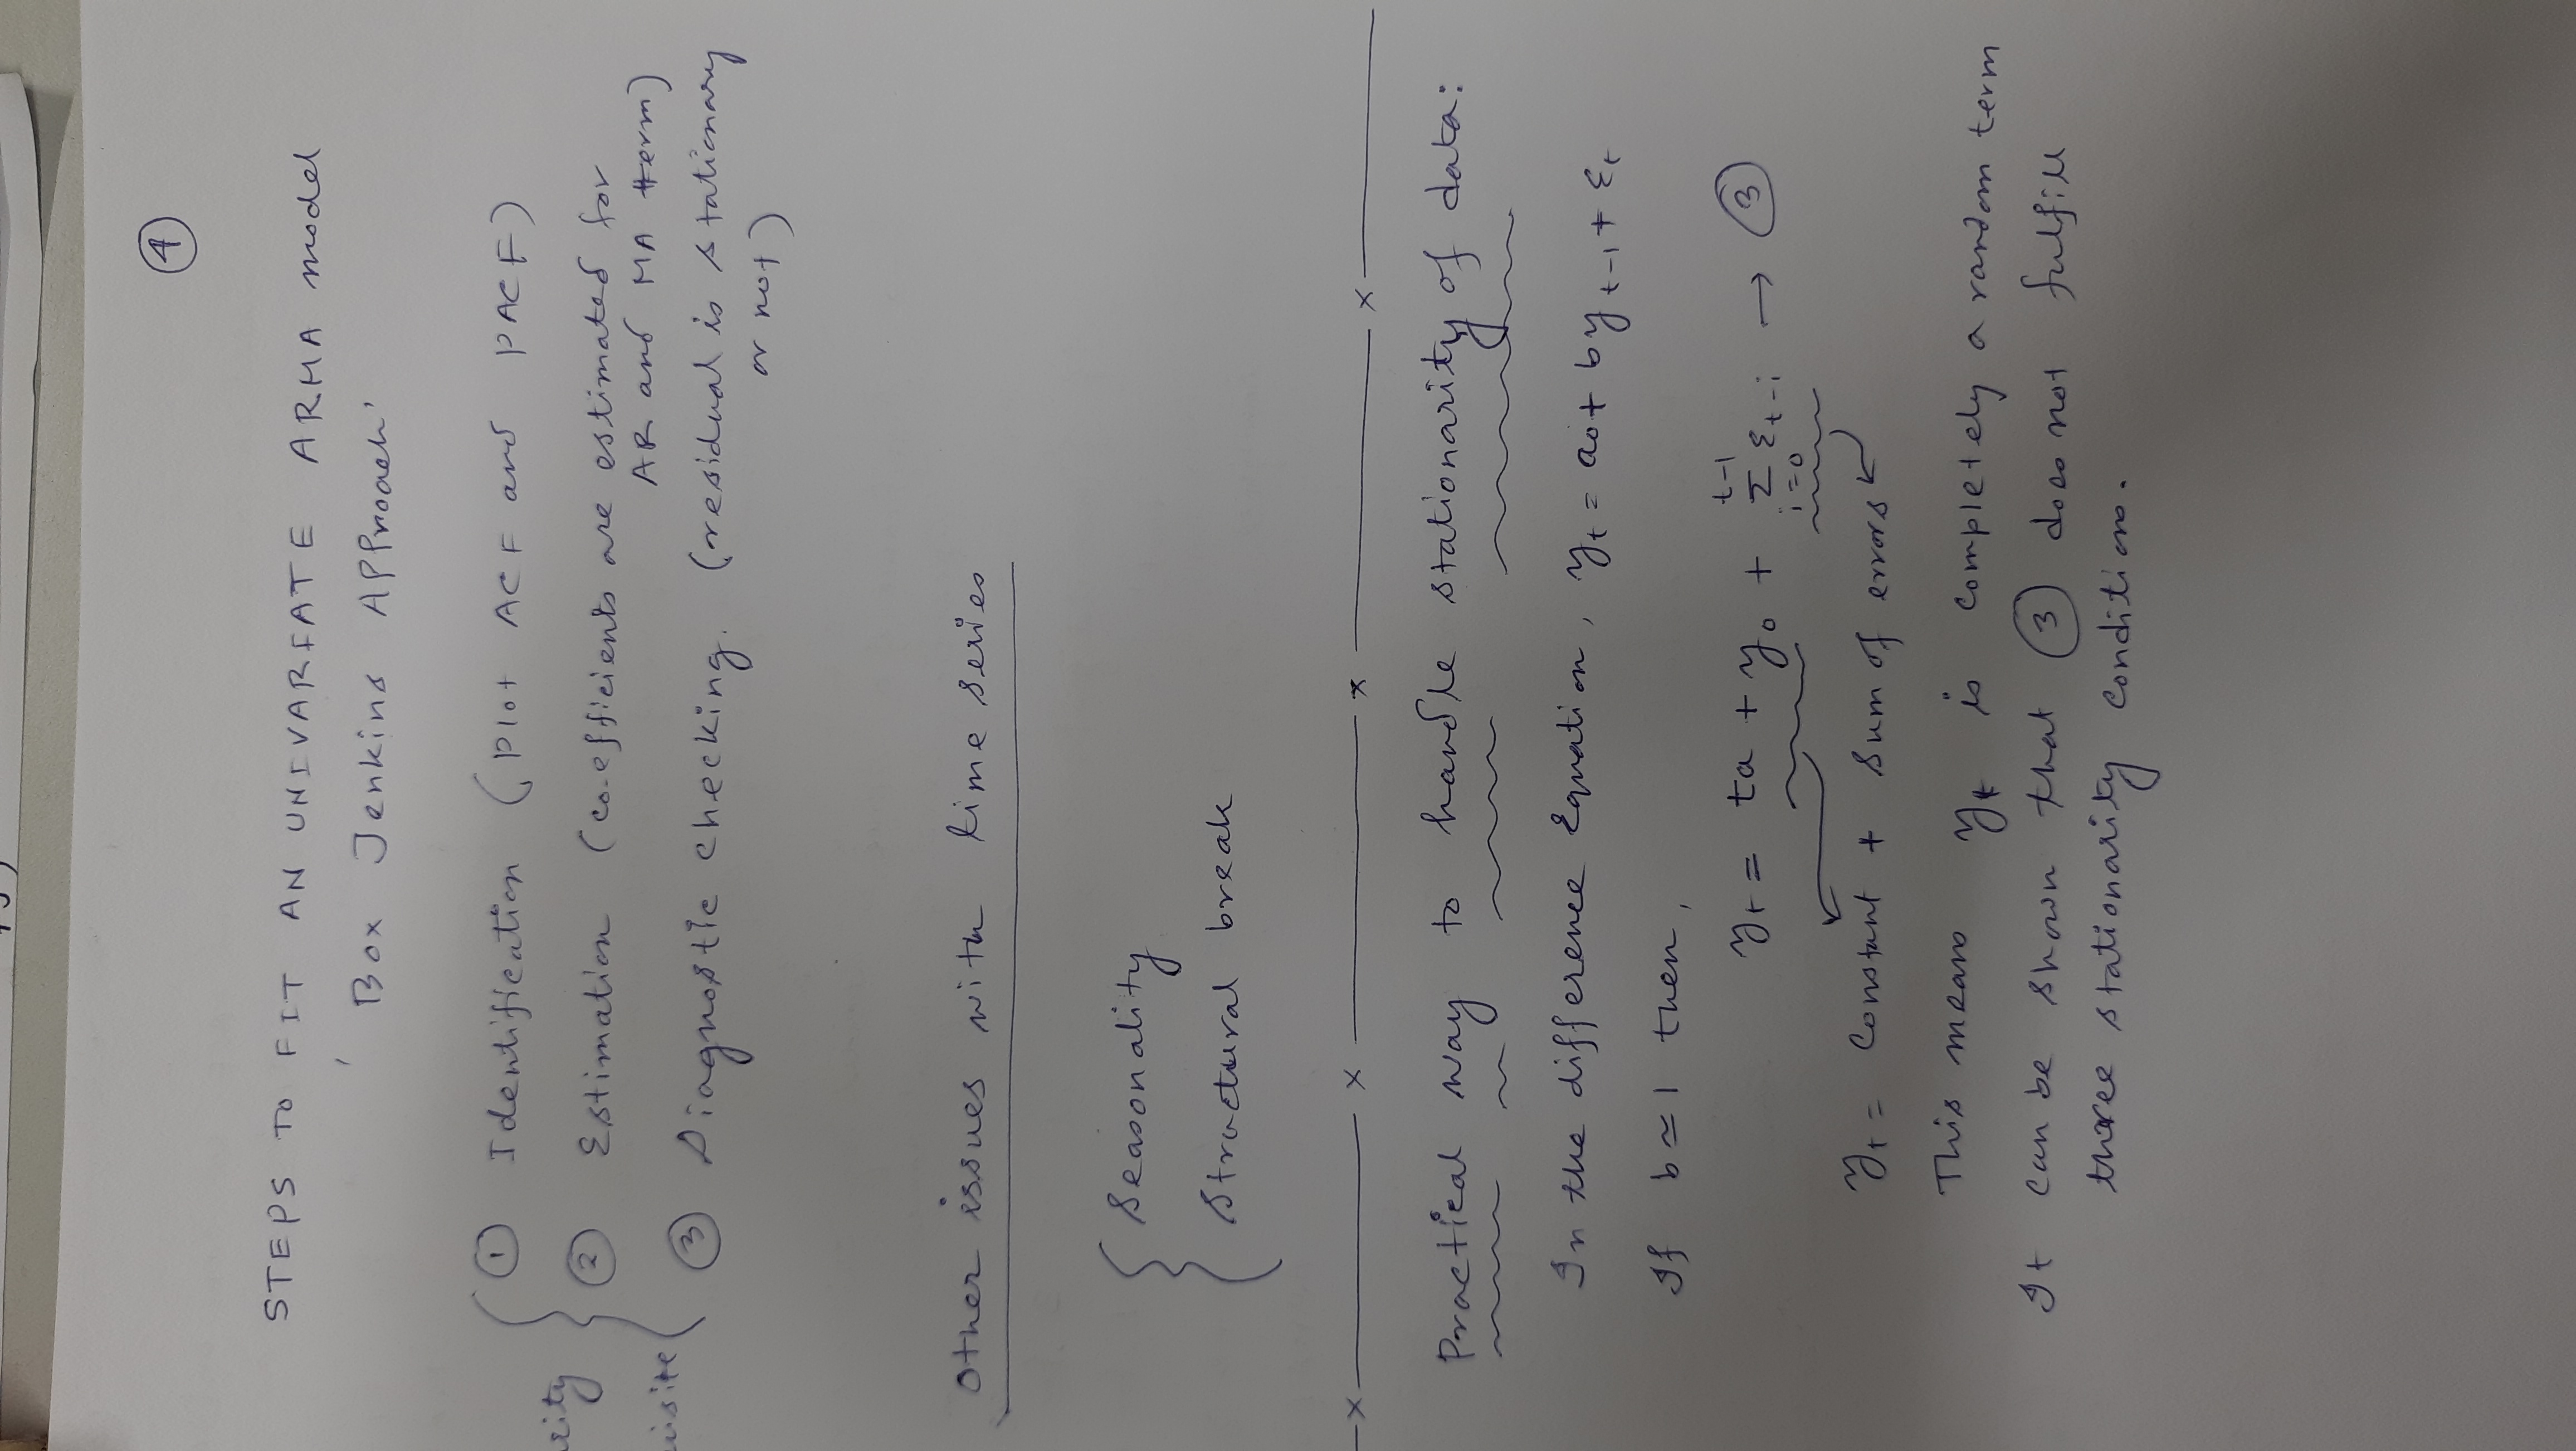 ④
STEPS TO FIT AN UNIVARIATE ARMA model
' Box Jenkins Approach'
① Identification (Plot ACF and PACF)
② Estimation (co-efficients are estimated for
AR and MA term)
③ Diagnostic checking. (residual is stationary
or not)
Other issues with time series
Seasonality
Structural break
—x———— x ————x ———— x————
Practical way to handle stationarity of data:
In the difference Equation, yₜ = a₀ + by ₜ₋₁ + εₜ
If b ≃ 1 then,
yₜ = ta + y₀ + Σ_{i=0}^{t-1} εₜ₋ᵢ → ③
yₜ = Constant + Sum of errors
This means yₜ is completely a random term
It can be shown that ③ does not fulfill
three stationarity conditions.